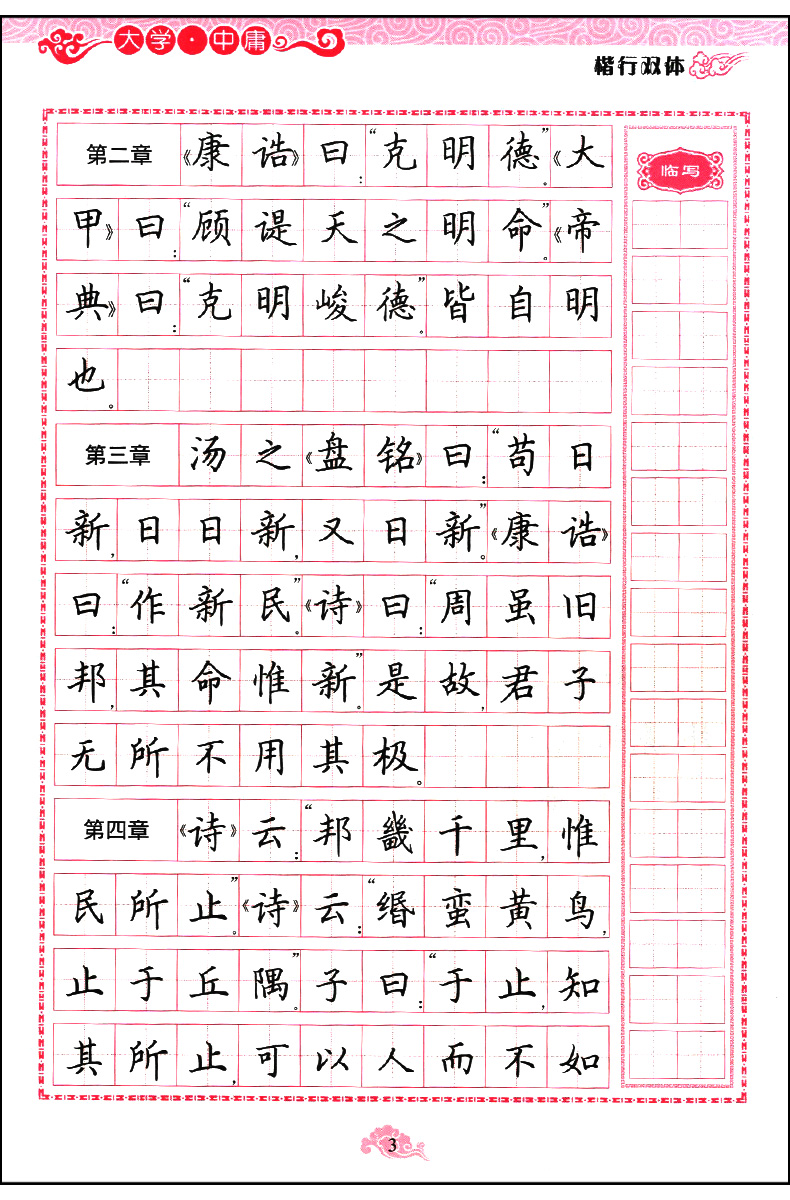 大学·中庸
楷行双体
临写
第二章 《康诰》曰：“克明德。”《大
甲》曰：“顾諟天之明命。”《帝
典》曰：“克明峻德。”皆自明
也。
第三章 汤之《盘铭》曰：“苟日
新，日日新，又日新。”《康诰》
曰：“作新民。”《诗》曰：“周虽旧
邦，其命惟新。”是故，君子
无所不用其极。
第四章 《诗》云：“邦畿千里，惟
民所止。”《诗》云：“缗蛮黄鸟，
止于丘隅。”子曰：“于止，知
其所止，可以人而不如
3